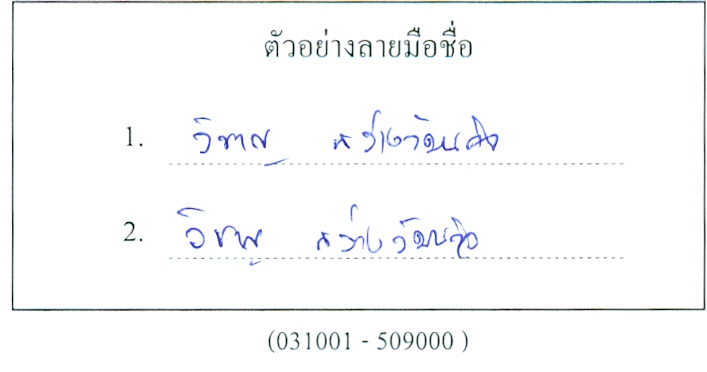 ตัวอย่างลายมือชื่อ
1. วิชาญ สว่างวัฒนกิจ
2. วิชาญ สว่างวัฒนกิจ
(031001 - 509000 )